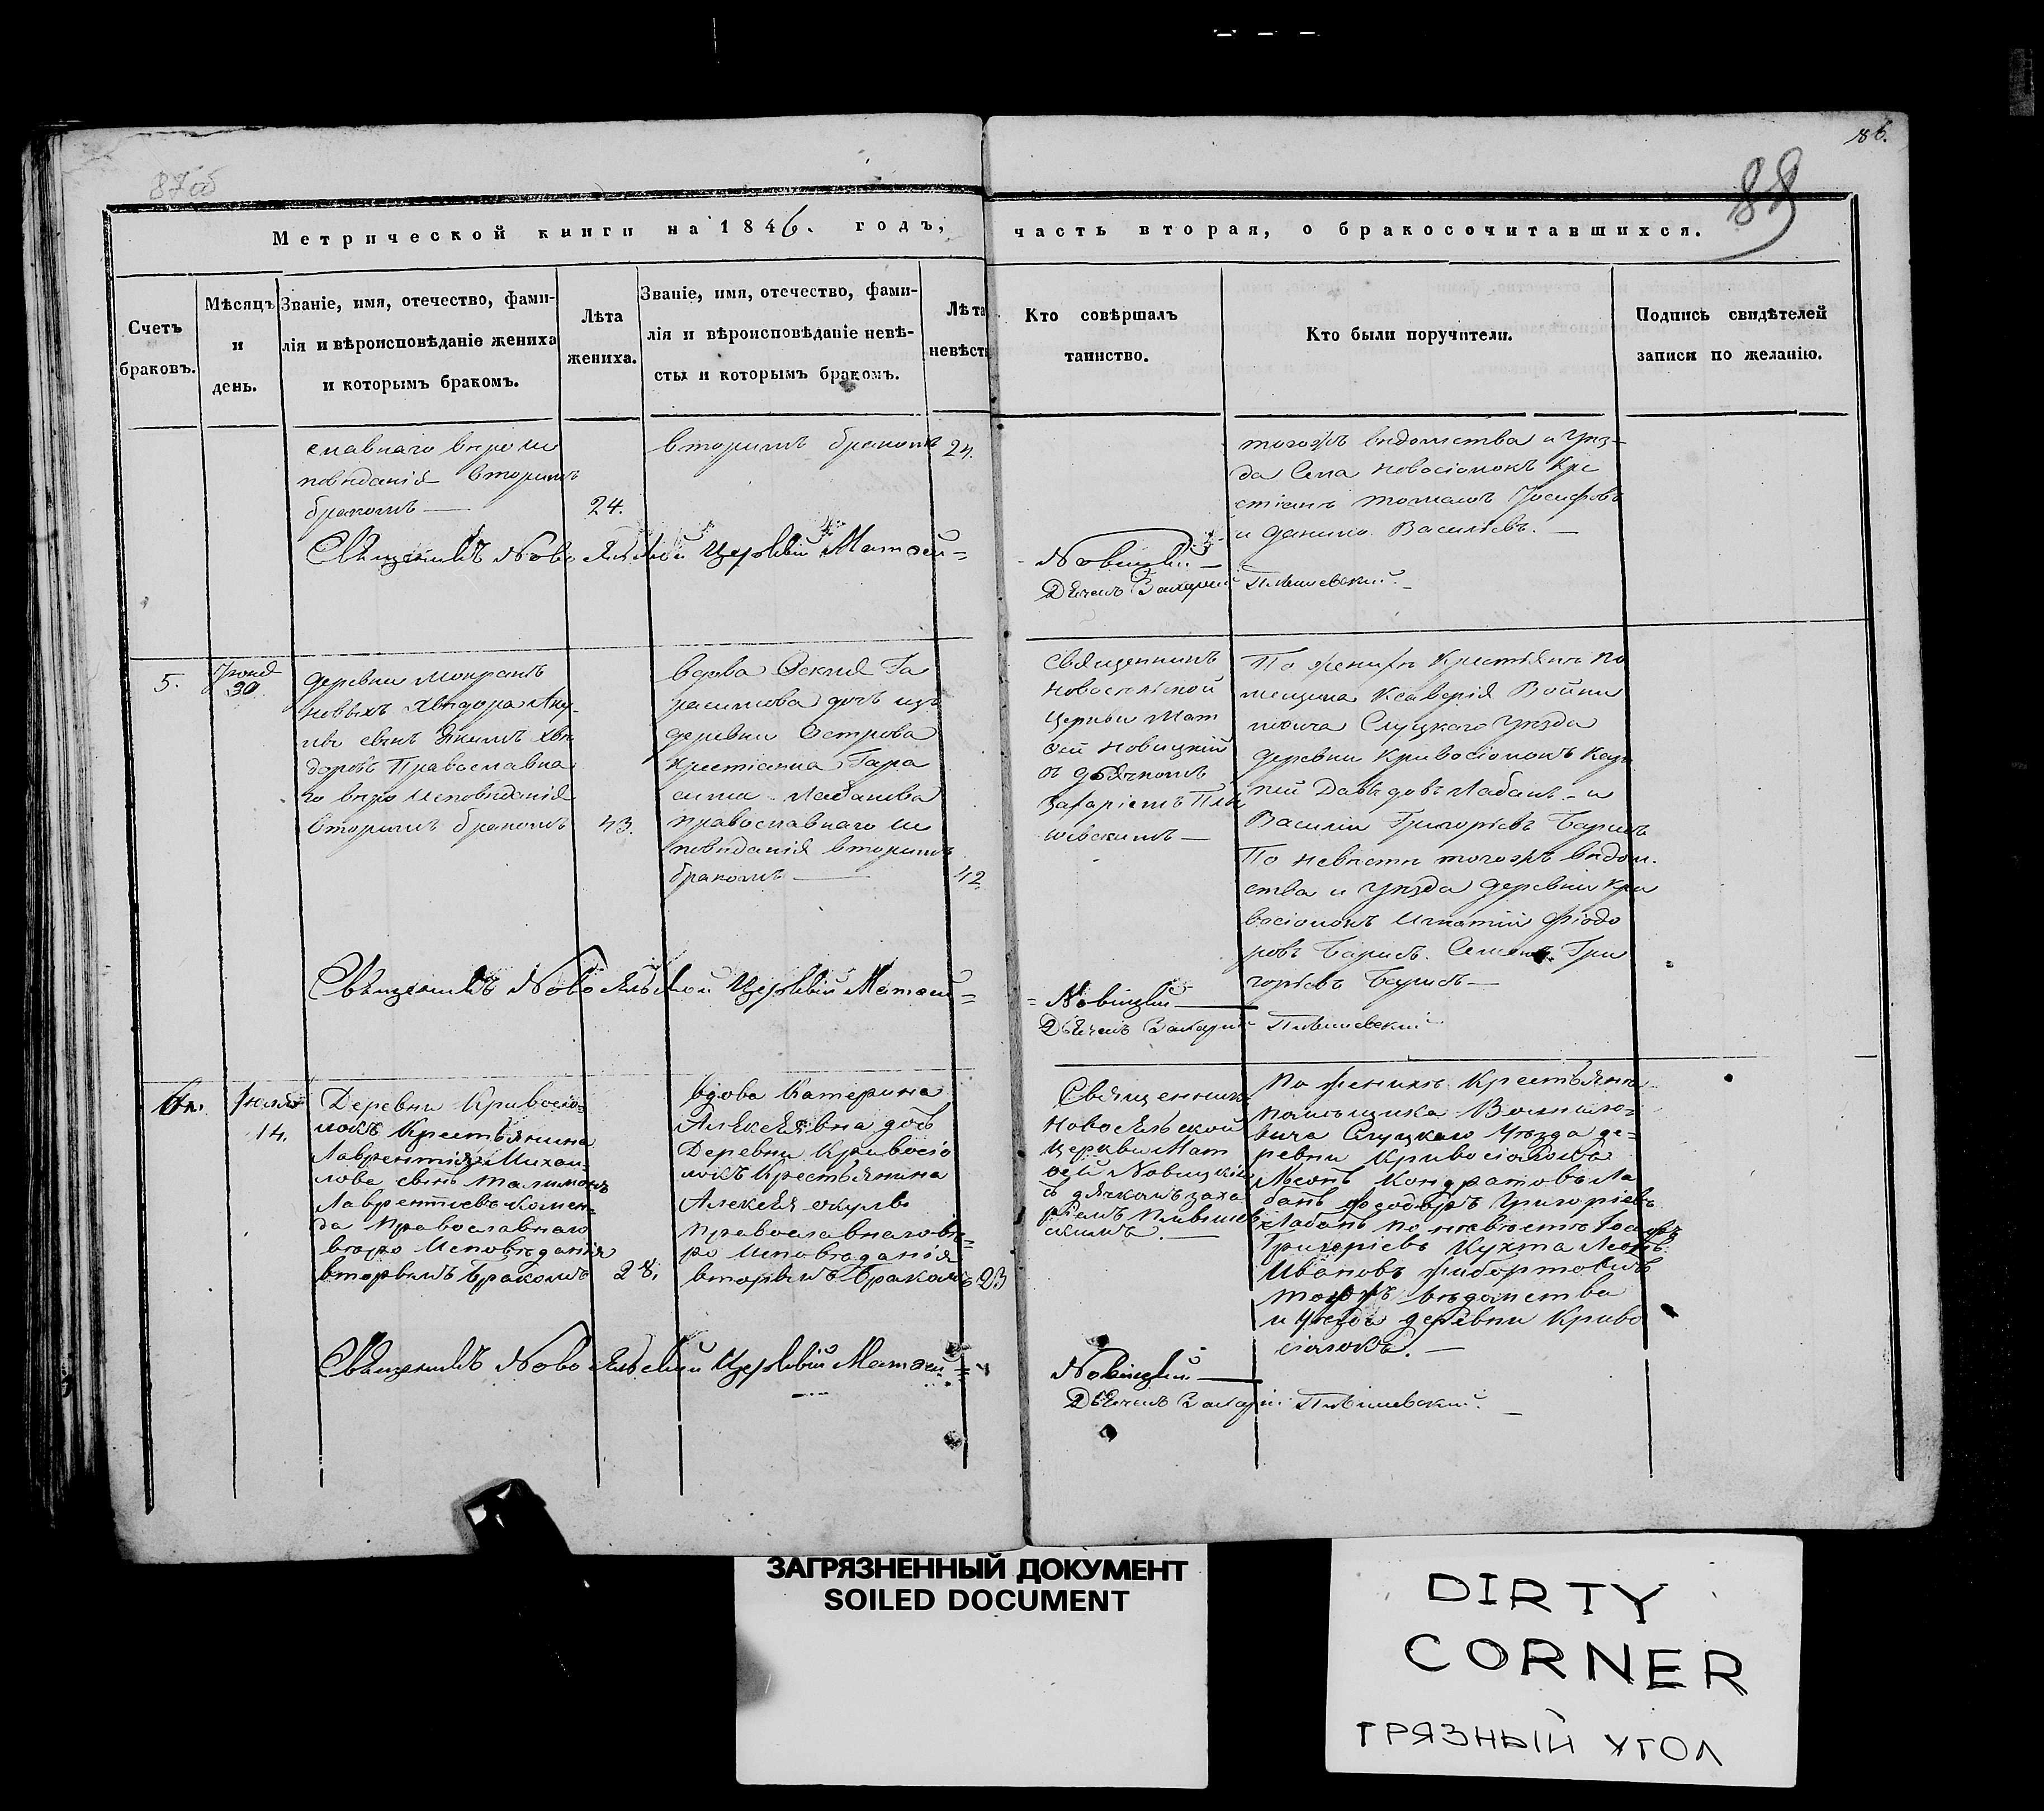 86.
87об
88
Метрической книги на 1846. годъ,
часть вторая, о бракосочитавшихся.
Счетъ
браковъ.
Мѣсяцъ
и
день.
Званіе, имя, отечество, фами-
лія и вѣроисповѣданіе жениха
и которымъ бракомъ.
Лѣта
жениха.
Званіе, имя, отечество, фами-
лія и вѣроисповѣданіе невѣ-
сты и которымъ бракомъ.
Лѣта
невѣсты
Кто совѣршалъ
таинство.
Кто были поручители.
Подпись свидѣтелей
записи по желанію.
славнаго вѣро ис
повѣданія вторымъ
бракомъ —
24.
вторымъ бракомъ
24.
тогожъ вѣдомства и уѣз-
да Села Новосіолокъ Кре
стіанъ Іосифовъ
и Данило Васильевъ. —
Священникъ Новоселъской Церквій Матѳей =
Новицкій —
Дьячекъ Захарій Пльвшевскій. —
5.
Іюня
30
деревни
сынъ
доровъ Православна
го вѣро исповѣданія
вторымъ бракомъ
43.
вдова Ѳеклія Га
расимова дочъ изъ
деревни Острова
крестіанина Гара
сима Лабанова
православнаго ис
повѣданія вторымъ
бракомъ —
42.
Священникъ
Новоселъской
Церкви Мат
ѳей Новицкій
съ дьячкомъ
Захаріемъ Плъв
шевскимъ —
По женихѣ Крестьянъ по
мещика Ксаверія Войни
ловича Слуцкаго уѣзда
деревни Кривосіолокъ
Давыдовъ Лабанъ - и
Василій Григорьевъ Барисъ
По невѣсте тогожъ вѣдом.
ства и уѣзда деревни Кри
восіолокъ Игнатій Фіодо
ровъ Барисъ. Семенъ Гри
горьевъ Барисъ —
Священникъ Новоселъской Церквій Матѳей =
= Новицкій —
Дьячекъ Захарій Пльвшевскій
6.
Іюля
14.
Деревни Кривосіо-
локъ Крестьянина
Лаврентія Михаи-
лове сынъ
Лаврентіевъ
да православнаго
вѣро исповѣданія
вторымъ бракомъ
28.
вдова Катерина
Алексѣявна дочъ
Деревни Кривосіо
локъ Крестьянина
Алексея
православнаго вѣ-
ро исповѣданія
вторымъ бракомъ
23
Священникъ
Новоселъской
Церкви Мат
ѳей Новицкій
съ дячкомъ Заха
ріемъ Плъвшев
скимъ. —
По женихѣ Крестьяне
помѣщика Войнило-
вича Слуцкаго Уѣзда де-
ревни Кривосіолокъ
Леонъ Кондратовъ Ла
банъ Феодоръ Григоріевъ
Лабанъ по невѣсте Іосифъ
Григоріевъ Кухта Леонъ
Ивановъ
тогожъ вѣдомства
и Уезда деревни Криво
сіолокъ. —
Священникъ Новоселъской Церквій Матѳей =
Новицкій —
Дьячекъ Захарій Пльвшевскій.
ЗАГРЯЗНЕННЫЙ ДОКУМЕНТ
SOILED DOCUMENT
DIRTY
CORNER
ГРЯЗНЫЙ УГОЛ